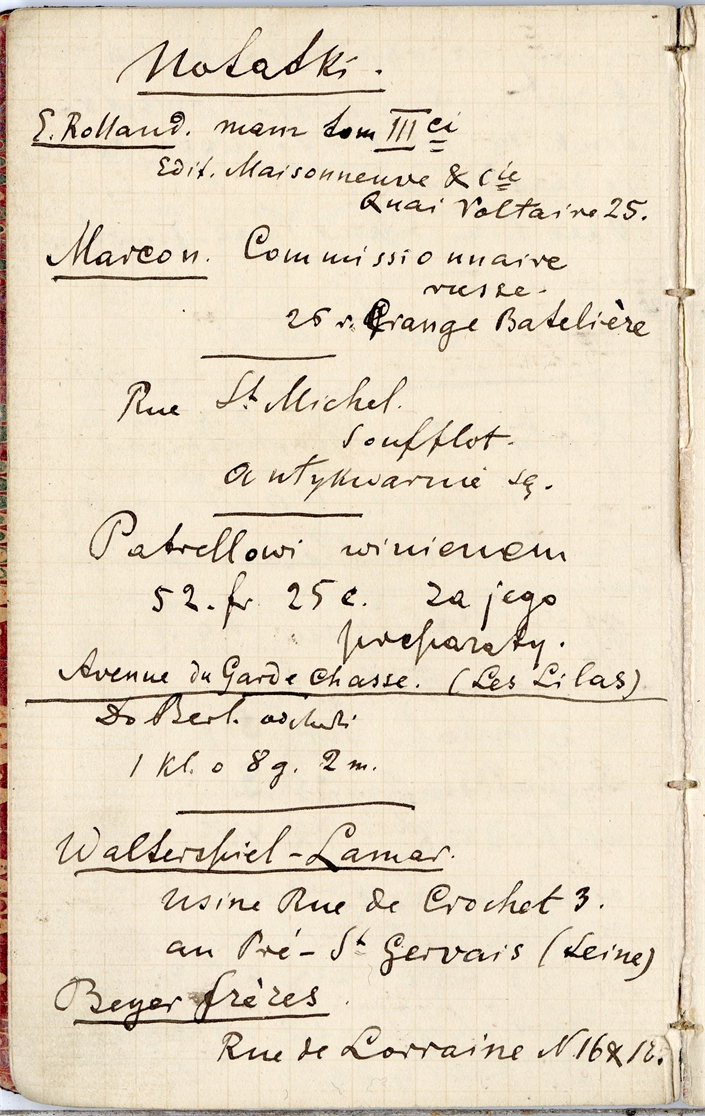 Notatki.
E. Rolland. mam tom III ci
Edit. Maisonneuve & Cie
Quai Voltaire 25.
Marcon. Commissionnaire
russe.
26 r. Grange Batelière
Rue St. Michel.
Soufflot.
antykwarnie są.
Patrellowi winienem
52. fr 25 c. za jego
preparaty.
Avenue du Garde Chasse. (Les Lilas)
Do Berl. odchodzi
1 kl. o 8 g. 2 m.
Walterspiel-Lamar.
usine Rue de Crochet 3.
au Pré-St Gervais (Seine)
Beyer frères.
Rue de Lorraine N. 16 &